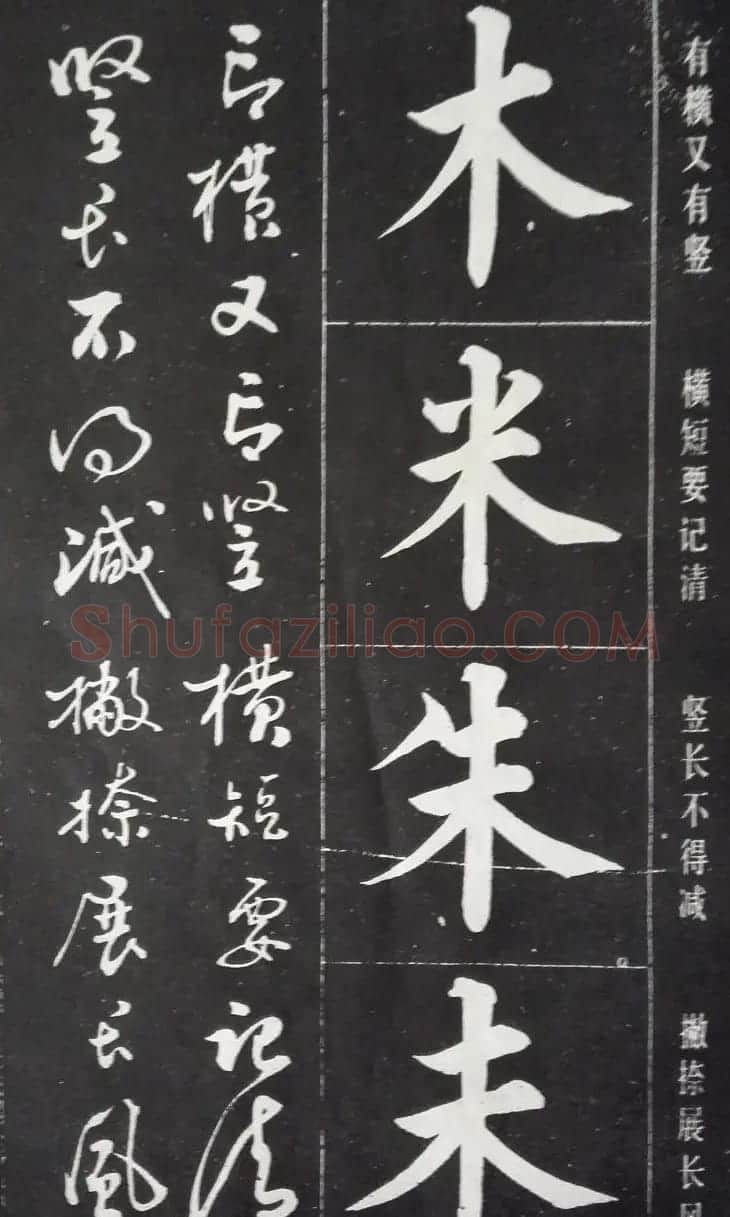 有横又有竖 横短要记清 竖长不得减 撇捺展长风
木
米
朱
未
有横又有豎 横短要记清
豎长不得減 撇捺展长風
Shufaziliao.COM